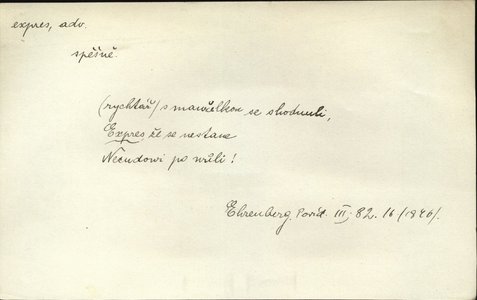 expres, adv.
spěšně.
(rychtář) s manželkou se shodnuli,
Expres že se nestane
Necudowi po wůli!
Ehrenberg. Povíd. III, 82. 16 (1846).